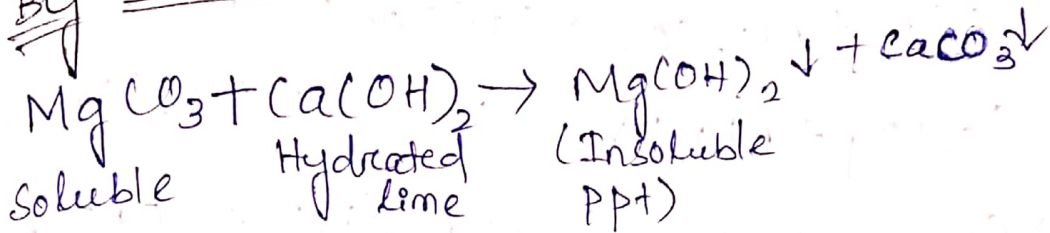 By
MgCO₃ + Ca(OH)₂ → Mg(OH)₂ ↓ + CaCO₃↓
Soluble Hydrated (Insoluble
lime ppt)